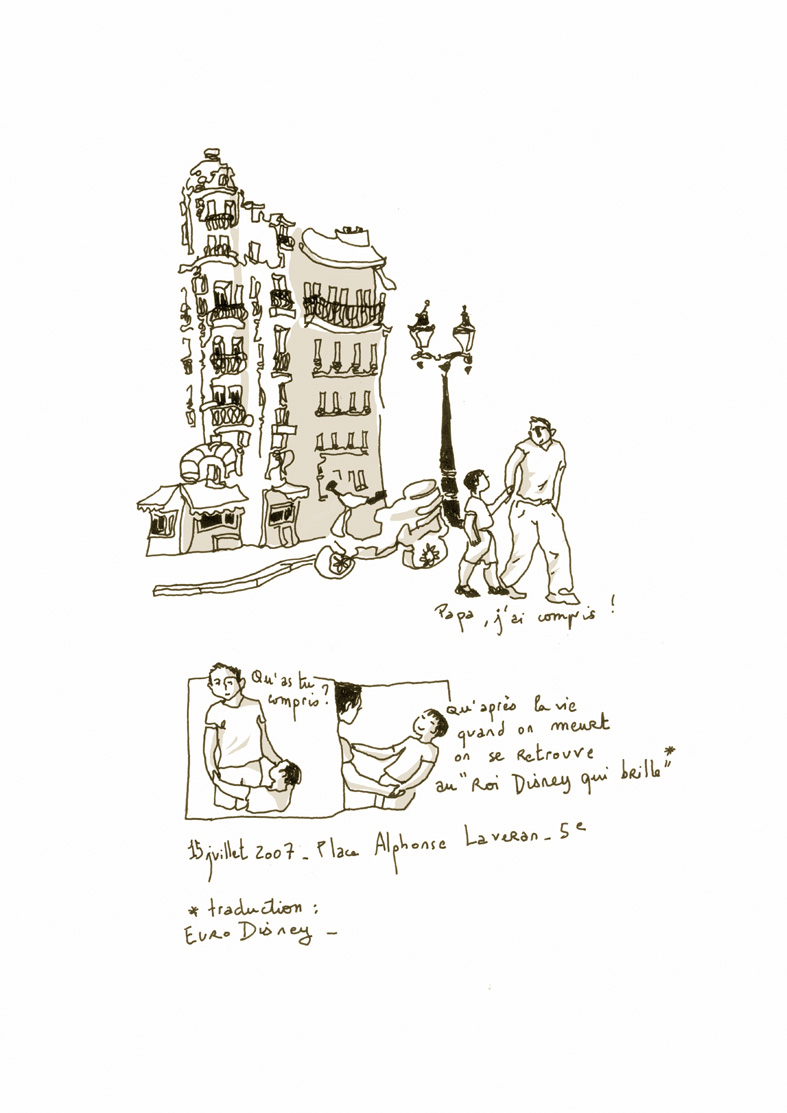 Papa, j'ai compris !
Qu'as tu
compris ?
qu'après la vie
quand on meurt
on se retrouve
au "Roi Disney qui brille"*
15 juillet 2007 _ Place Alphonse Laveran _ 5e
* traduction :
Euro Disney _